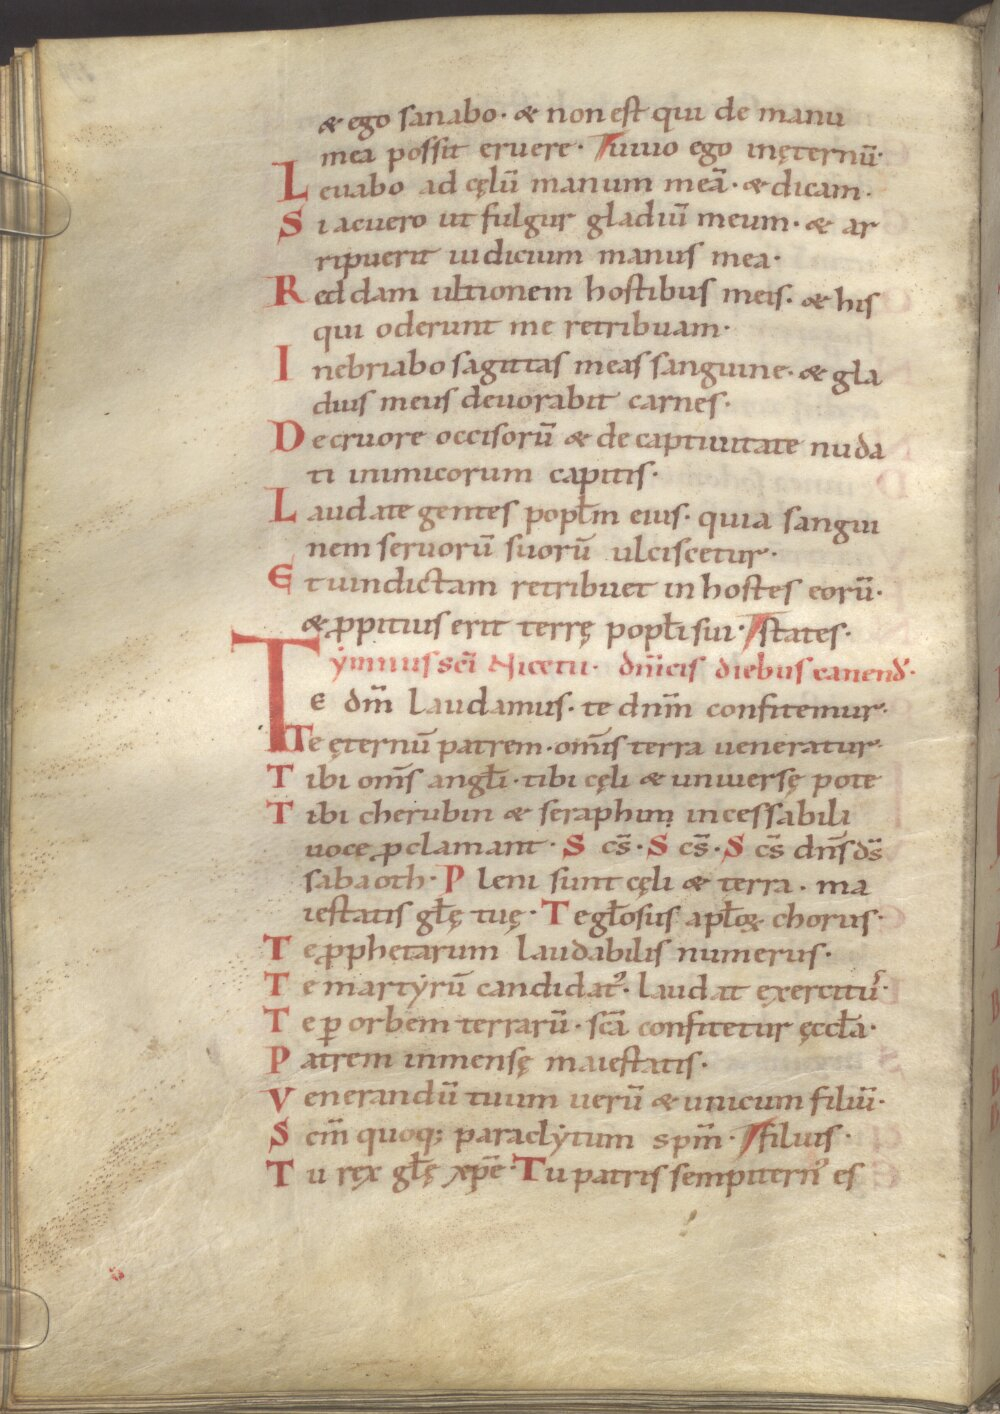 & ego sanabo· & non est qui de manu
mea possit eruere· ⁄uiuo ego inęternū·
Leuabo ad cęlū manum meā· & dicam·
Si acuero ut fulgur gladiū meum· & ar
ripuerit iudicium manus mea·
Reddam ultionem hostibus meis· & his
qui oderunt me retribuam·
Inebriabo sagittas meas sanguine· & gla
dius meus deuorabit carnes·
De cruore occisorū & de captiuitate nuda
ti inimicorum capitis·
Laudate gentes popl̄m eius· quia sangui
nem seruorū suorū ulciscetur·
Et uindictam retribuet in hostes eorū·
& ꝓpitius erit terrę popl̄i sui· ⁄states·
ẏmnus sc̄i Nicetii· dn̄icis diebus canend̛·
Te dm̄ laudamus· te dnm̄ confitemur·
Te ęternū patrem· om̄is terra ueneratur·
Tibi om̄s angl̄i· tibi cęli & uniuersę pote
Tibi cherubin & seraphim incessabili
uoce ꝓclamant· Sc̄s· Sc̄s· Sc̄s dn̄s ds̄
sabaoth· Pleni sunt cęli & terra· ma
iestatis gl̄ę tuę· Te gl̄osus apl̄oꝝ chorus·
Te ꝓphetarum laudabilis numerus·
Te martẏrū candidat᾿· laudat exercitus᾿·
Te ꝑ orbem terrarū· sc̄a confitetur ęccl̄a·
Patrem inmensę maiestatis·
Venerandū tuum uerū & unicum filiū·
Sc̄m quoq; paraclẏtum spm̄· ⁄filius·
Tu rex gl̄ę xp̄e· Tu patris sempitern᾿ es